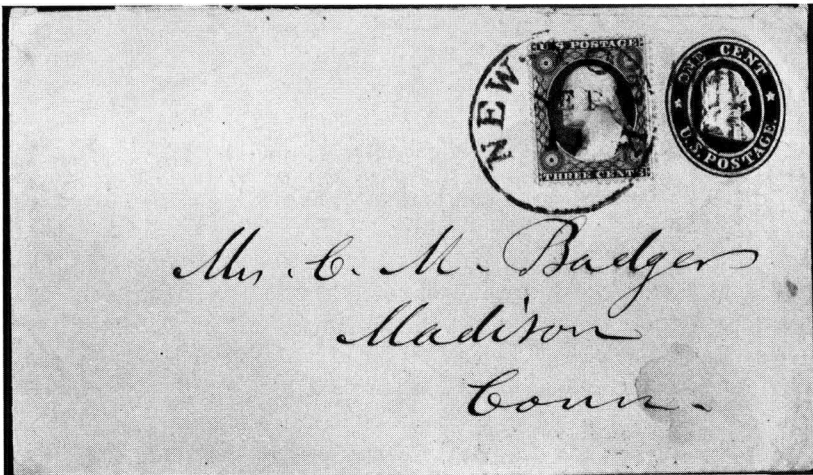 U.S. POSTAGE
THREE CENTS
NEW
ONE CENT
U.S. POSTAGE.
Mrs. C. M. Badger
Madison
Conn.